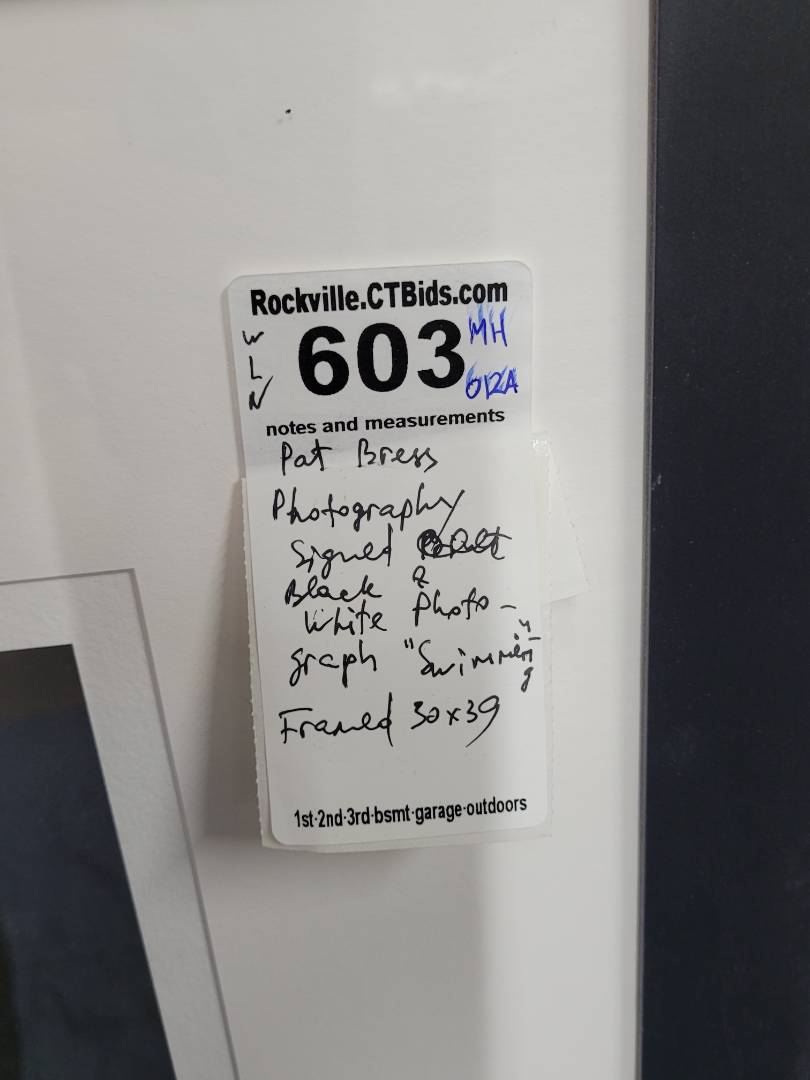 Rockville.CTBids.com
W
L
N
603
MH
012A
notes and measurements
Pat Bress
Photography
Signed
Black &
White Photo-
graph "Swimming"
Framed 30x39
1st·2nd·3rd·bsmt·garage·outdoors